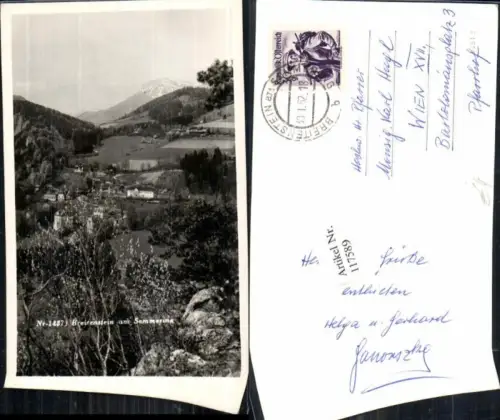 Nr. 1487) Breitenstein am Semmering
Österreich
BREITENSTEIN
Pfarrer
Monsig Karl Hügl
WIEN XVII,
Bartholomäusplatz 3
Pfarrhof
Artikel Nr.
117589
Grüße
entbieten
Helga u. Gerhard